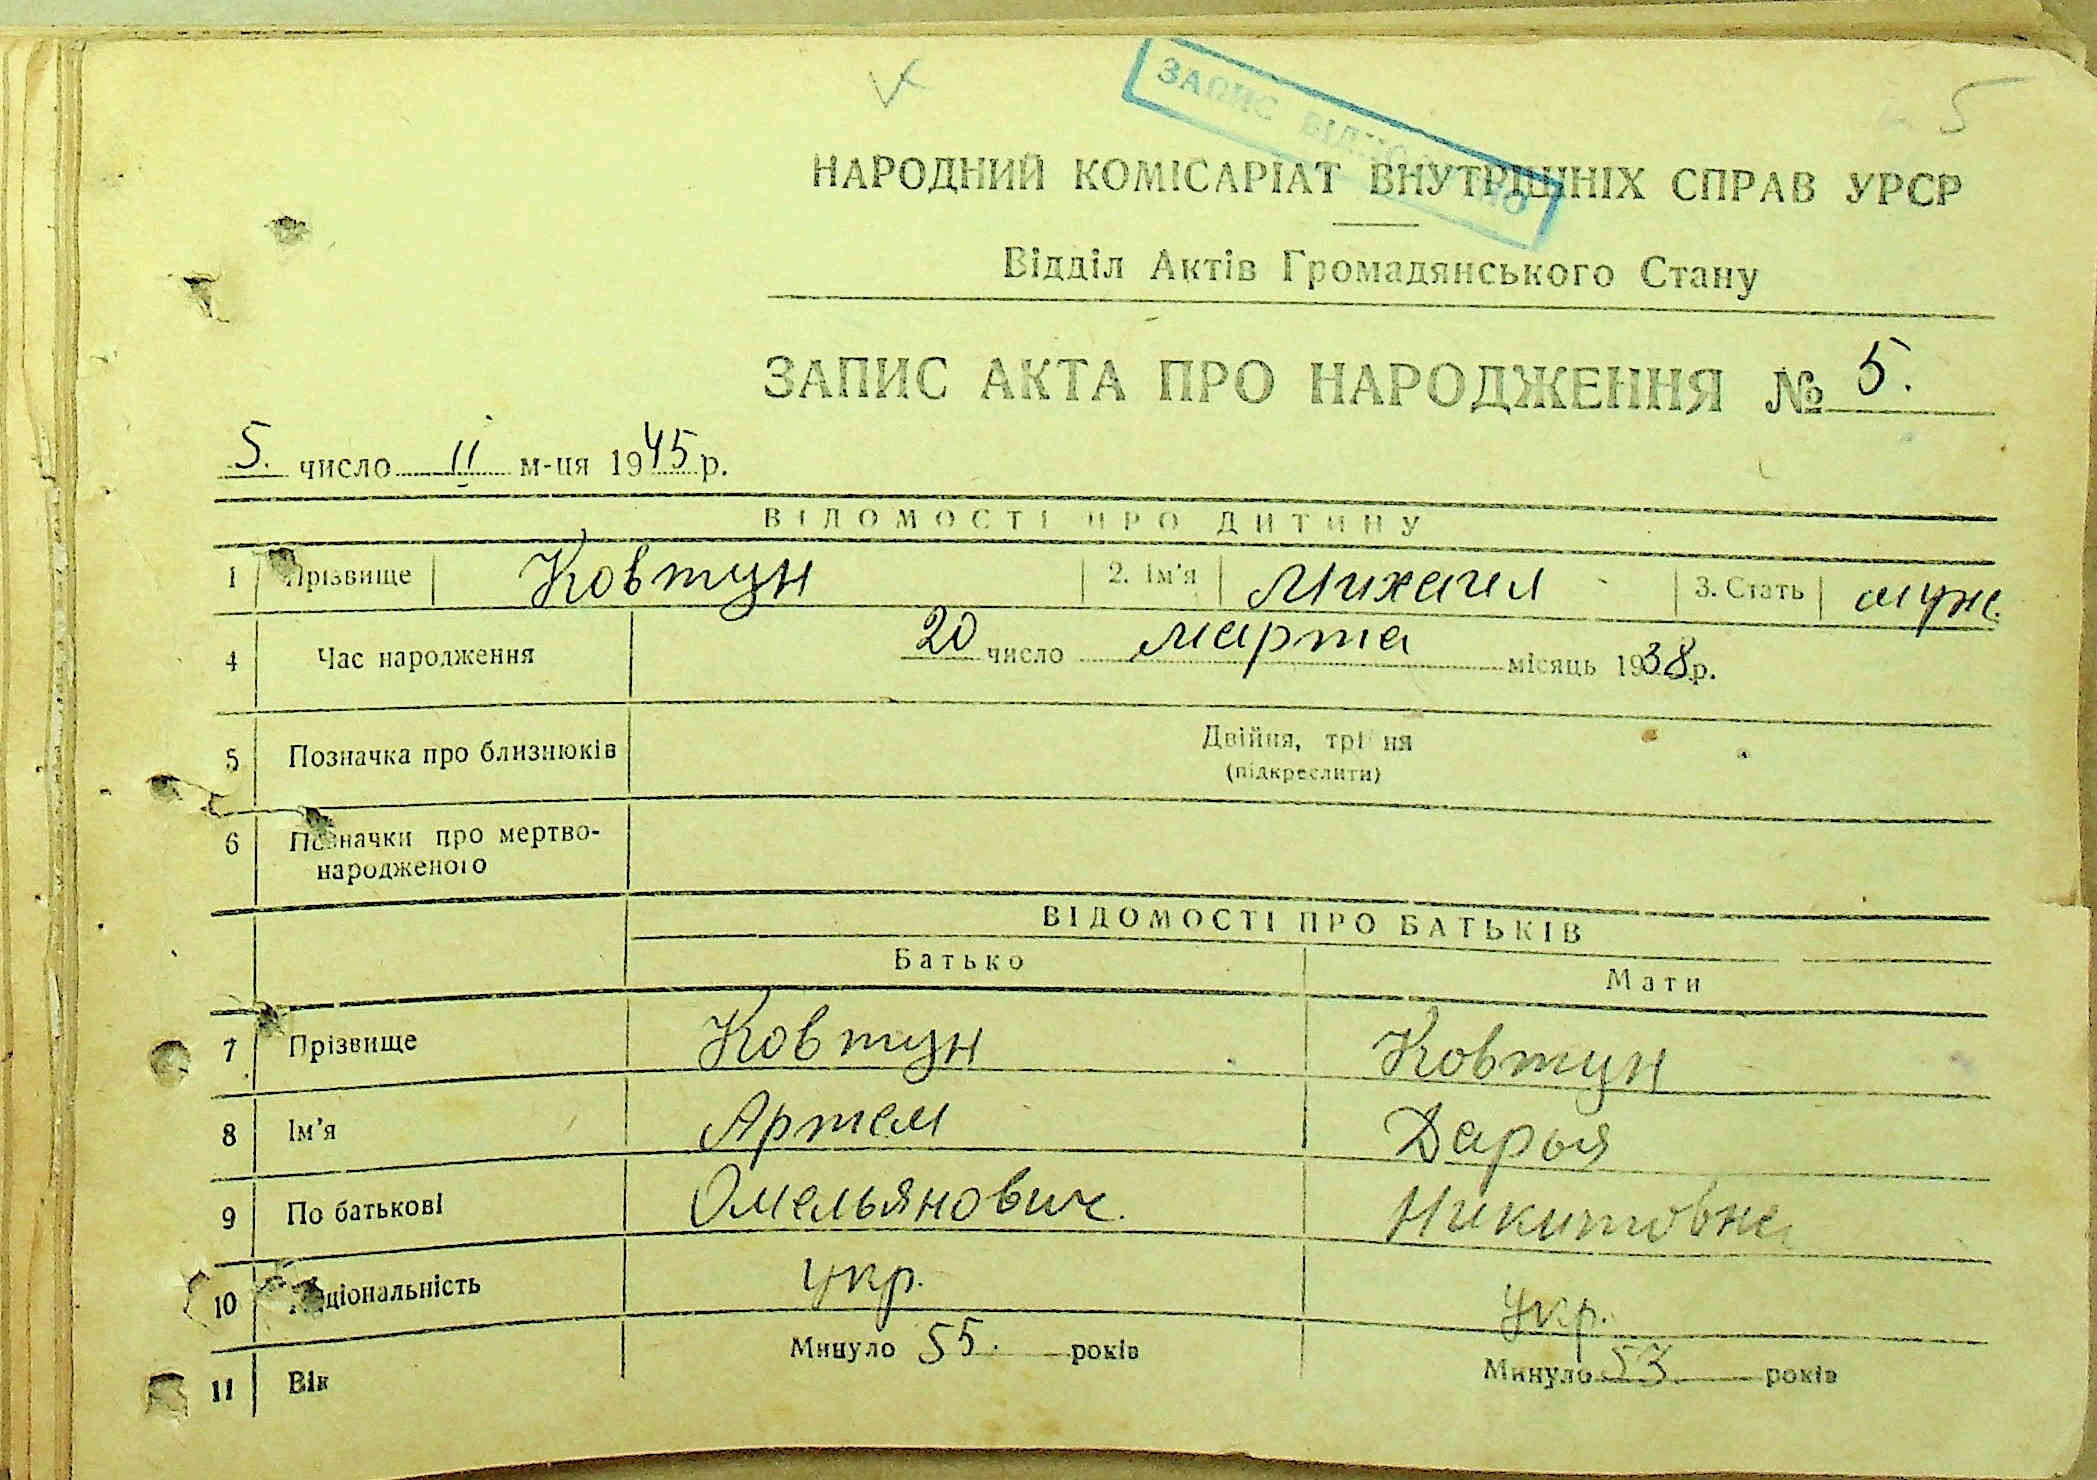 5
ЗАПИС ВІДНОВЛЕНО
НАРОДНИЙ КОМІСАРІАТ ВНУТРІШНІХ СПРАВ УРСР
Відділ Актів Громадянського Стану
ЗАПИС АКТА ПРО НАРОДЖЕННЯ № 5.
5. число II м-ця 1945 р.
ВІДОМОСТІ ПРО ДИТИНУ
1 Прізвище Ковтун 2. Ім'я Михаил 3. Стать муж.
4 Час народження 20 число марта місяць 1938 р.
5 Позначка про близнюків Двійня, трійня
(підкреслити)
6 Позначки про мертво-
народженого
ВІДОМОСТІ ПРО БАТЬКІВ
Батько Мати
7 Прізвище Ковтун Ковтун
8 Ім'я Артем Дарья
9 По батькові Омельянович. Никитовна
10 Національність укр. укр.
11 Вік Минуло 55. років Минуло 53. років